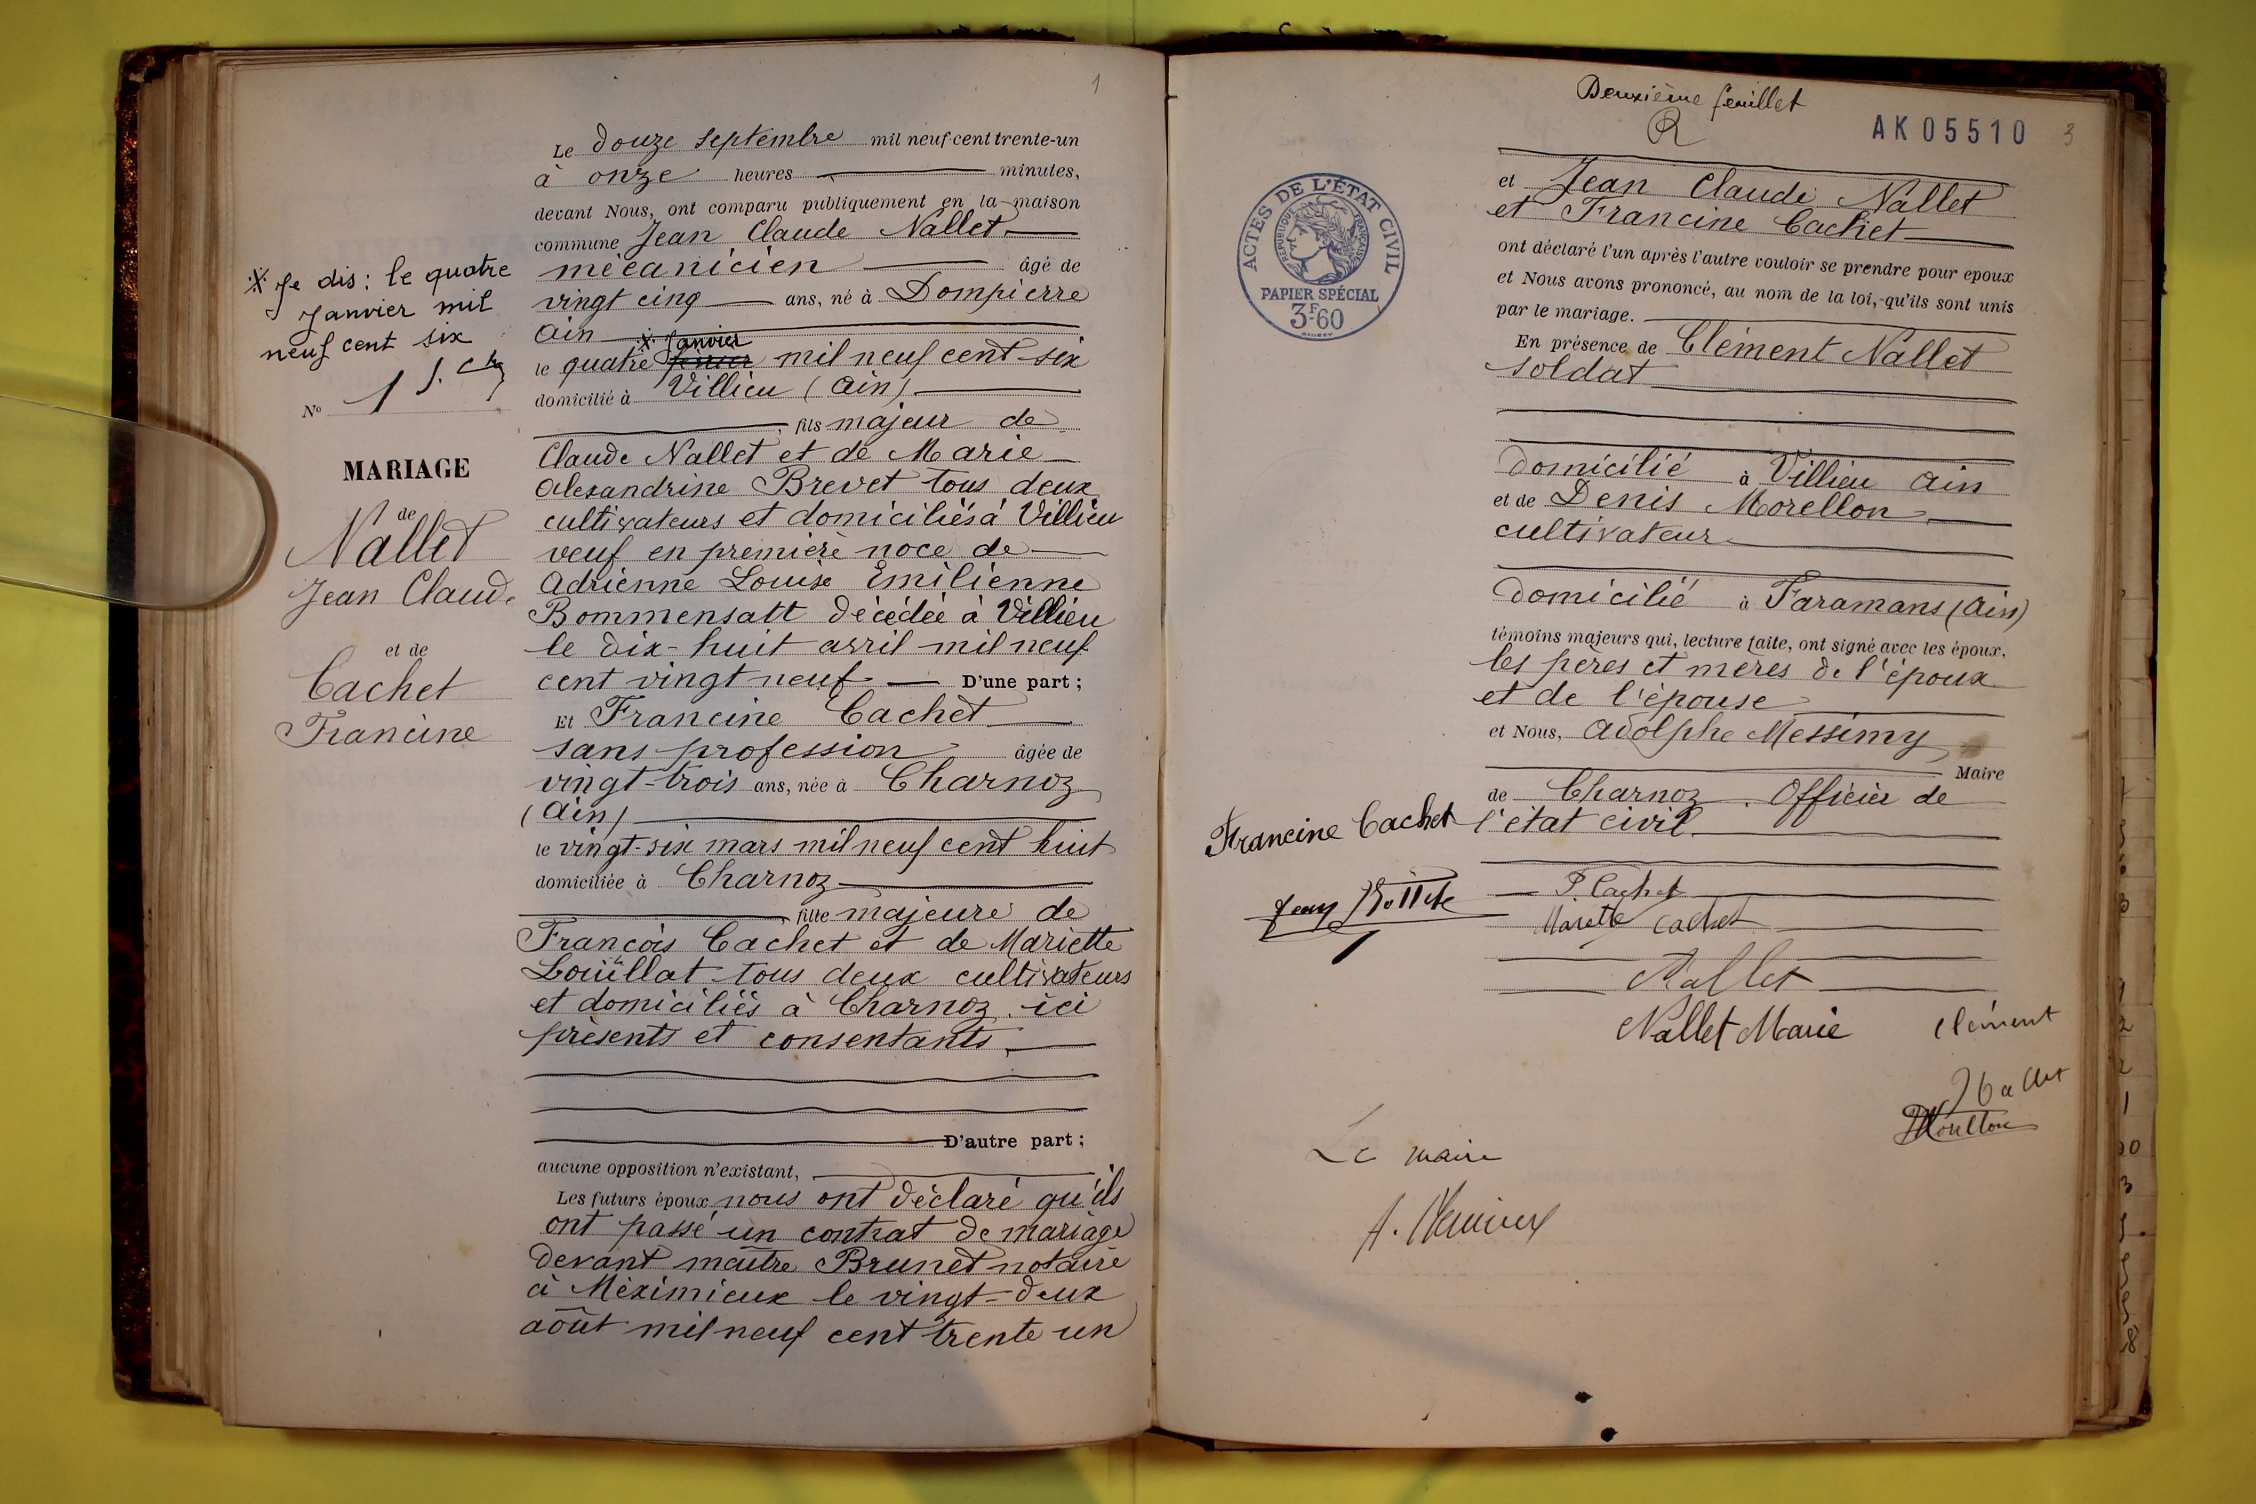 1
Le douze septembre mil neuf cent trente-un
à onze heures minutes,
devant Nous, ont comparu publiquement en la maison
commune Jean Claude Nallet
mécanicien âgé de
vingt cinq ans, né à Dompierre
Ain
le quatre ※ Janvier février mil neuf cent six
domicilié à Villieu (Ain)
, fils majeur de
Claude Nallet et de Marie
Alexandrine Brevet tous deux
cultivateurs et domiciliés à Villieu
veuf en première noce de
Adrienne Louise Emilienne
Bommensatt décédée à Villieu
le dix-huit avril mil neuf
cent vingt neuf D'une part ;
Et Francine Cachet
sans profession âgée de
vingt-trois ans, née à Charnoz
(Ain)
le vingt-six mars mil neuf cent huit
domiciliée à Charnoz
, fille majeure de
François Cachet et de Mariette
Louillat tous deux cultivateurs
et domiciliés à Charnoz ici
présents et consentants
D'autre part ;
aucune opposition n'existant,
Les futurs époux nous ont déclaré qu'ils
ont passé un contrat de mariage
devant maître Brunet notaire
à Méximieux le vingt-deux
août mil neuf cent trente un
※ Je dis : le quatre
Janvier mil
neuf cent six
N° 1
MARIAGE
de
Nallet
Jean Claude
et de
Cachet
Francine
Deuxième feuillet
R
AK05510
3
ACTES DE L'ÉTAT CIVIL
RÉPUBLIQUE FRANÇAISE
PAPIER SPÉCIAL
3F.60
et Jean Claude Nallet
et Francine Cachet
ont déclaré l'un après l'autre vouloir se prendre pour epoux
et Nous avons prononcé, au nom de la loi, qu'ils sont unis
par le mariage.
En présence de Clément Nallet
soldat
domicilié à Villieu Ain
et de Denis Morellon
cultivateur
domicilié à Faramans (Ain)
témoins majeurs qui, lecture faite, ont signé avec les époux,
les peres et meres de l'époux
et de l'épouse
et Nous, Adolphe Messimy
Maire
de Charnoz Officier de
l'état civil
Francine Cachet
F. Cachet
Jean
Cachet
Nallet
Nallet Marie
Clément
Nallet
Le maire